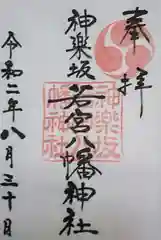 奉拝
神楽坂若宮八幡神社
神楽坂
八幡神社
令和二年八月三十日